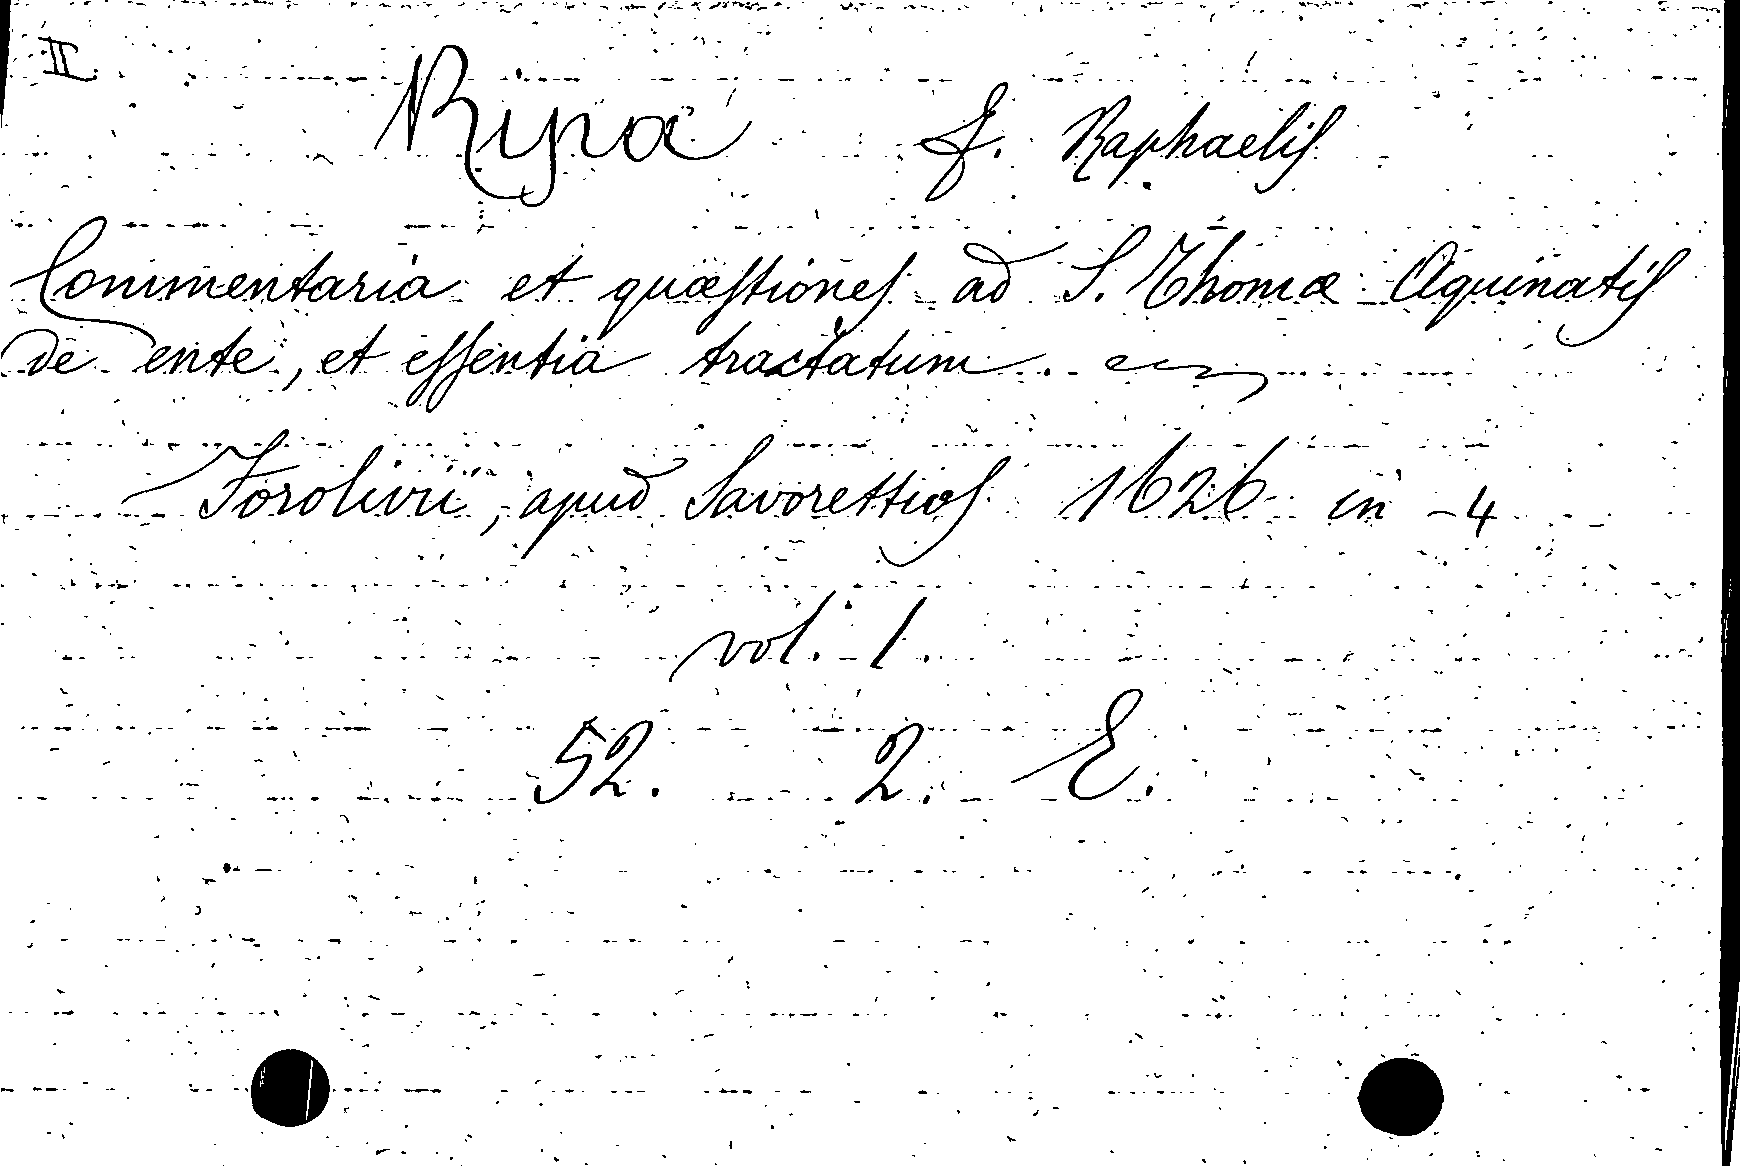 II.
Ripa f. Raphaelis
Commentaria et quæstiones ad S. Thomæ Aquinatis
de ente, et essentia tractatum.
Forolivii, apud Savorettios 1626 in -4
vol. 1.
52. 2. E.